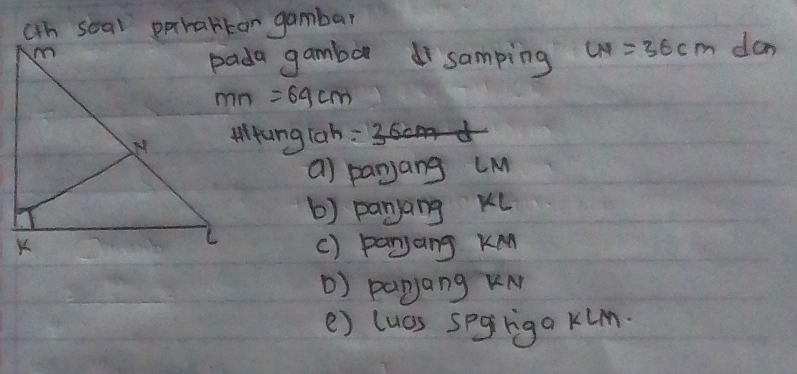 cth soal parhatikan gambar
pada gambar di samping LN = 36 cm dan
mn = 64 cm
Hitunglah = 36cm d
a) panjang LM
b) panjang KL
c) panjang KM
D) panjang KN
e) luas spgi tiga KLM.
M
N
K
L